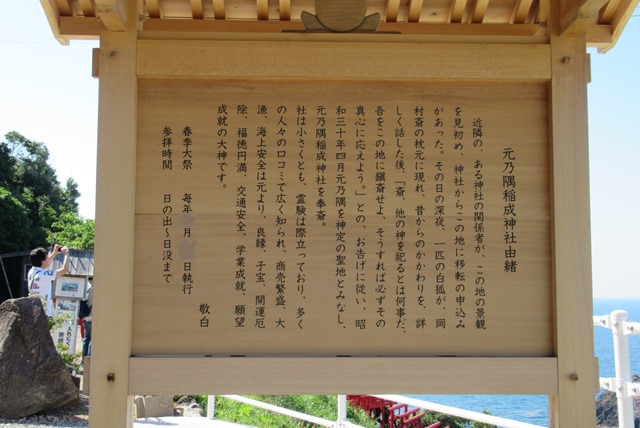 元乃隅稲成神社由緒
近隣の、ある神社の関係者が、この地の景観
を見初め、神社からこの地に移転の申込み
があった。その日の深夜、一匹の白狐が、岡
村斎の枕元に現れ、昔からのかかわりを、詳
しく話した後、「斎、他の神を祀るとは何事だ、
吾をこの地に鎮斎せよ、そうすれば必ずその
真心に応えよう。」との、お告げに従い、昭
和三十年四月元乃隅を神定の聖地とみなし、
元乃隅稲成神社を奉斎。
社は小さくとも、霊験は際立っており、多く
の人々の口コミで広く知られ、商売繁盛、大
漁、海上安全は元より、良縁、子宝、開運厄
除、福徳円満、交通安全、学業成就、願望
成就の大神です。
敬白
春季大祭 毎年 月 日執行
参拝時間 日の出〜日没まで